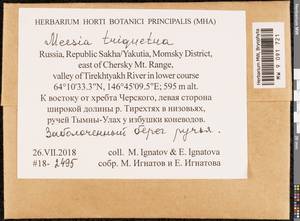 HERBARIUM HORTI BOTANICI PRINCIPALIS (MHA)
Meesia triquetra
Russia, Republic Sakha/Yakutia, Momsky District,
east of Chersky Mt. Range,
valley of Tirekhtyakh River in lower course
64°10'33.3"N, 146°45'09.5"E; 595 m alt.
К востоку от хребта Черского, левая сторона
широкой долины р. Тирехтях в низовьях,
ручей Тымны-Улах у избушки коневодов.
Заболоченный берег ручья.
26.VII.2018 coll. M. Ignatov & E. Ignatova
#18- 2495 собр. М. Игнатов и Е. Игнатова
Herbarium MW, Bryophyta
MW 9 091 721